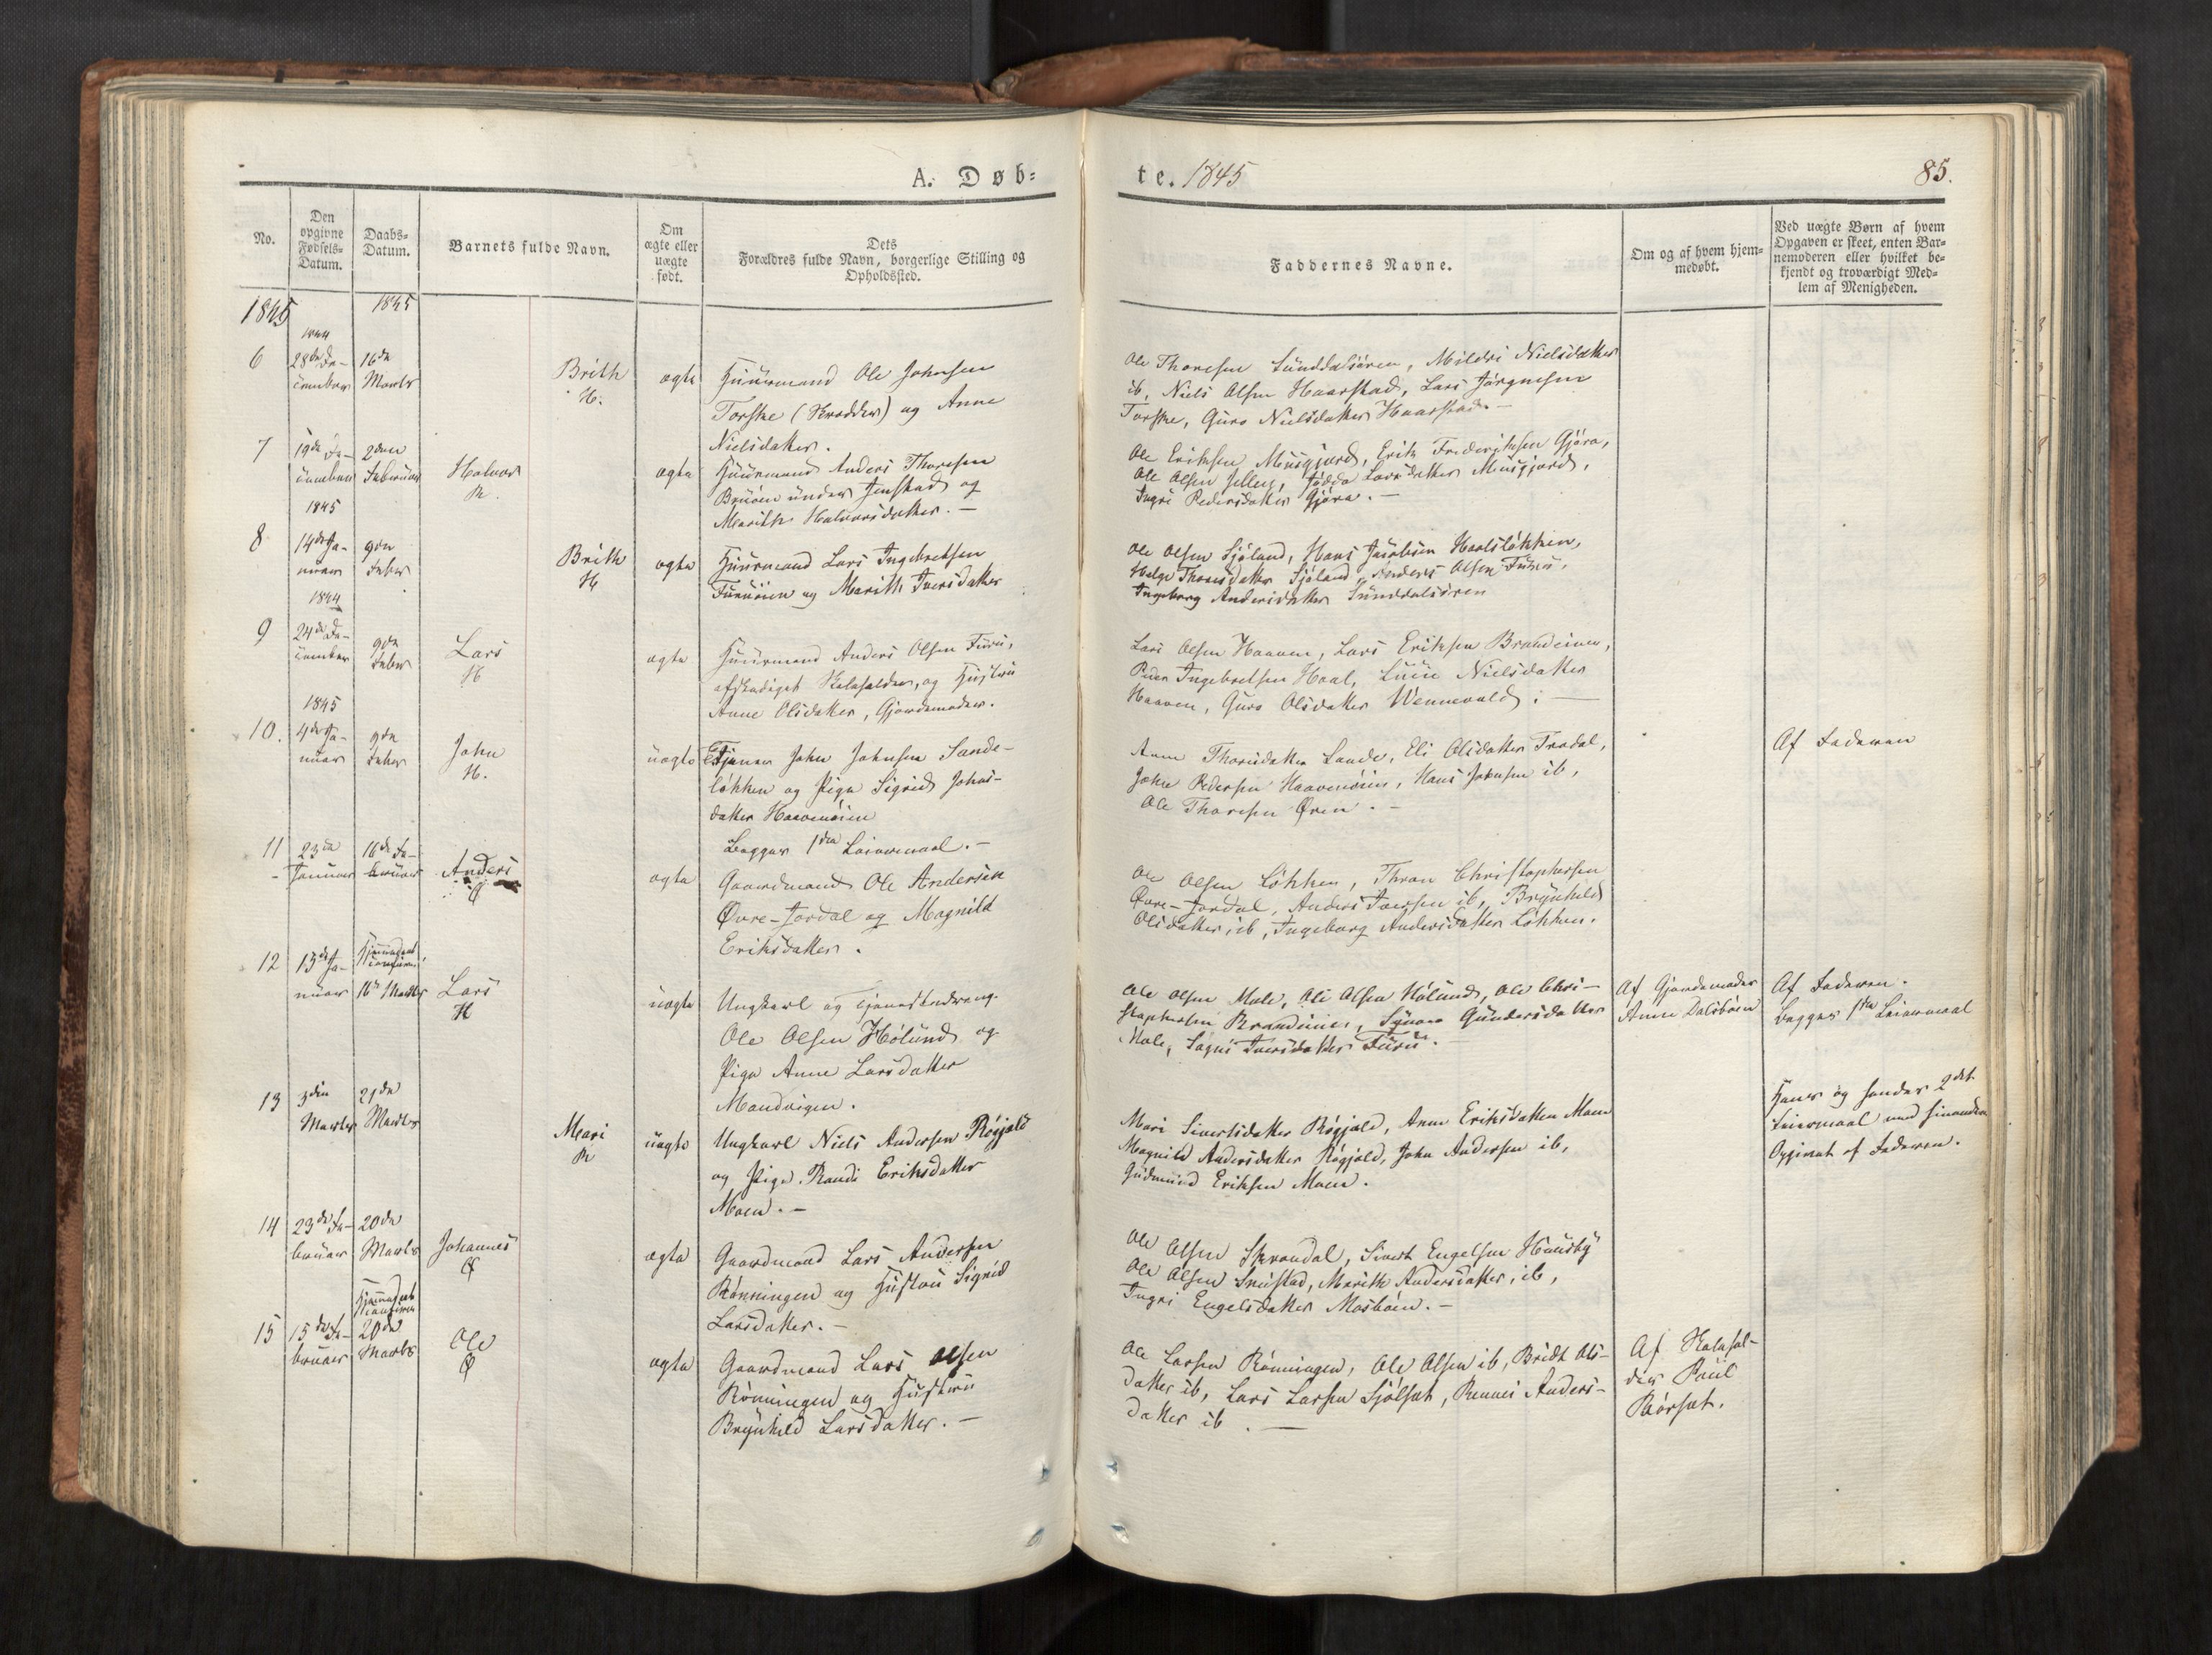 A. Døb=
te. 1845
85.
No.
Den opgivne Fødsels= Datum.
Daabs= Datum.
Barnets fulde Navn.
Om ægte eller uægte født.
Dets Forældres fulde Navn, borgerlige Stilling og Opholdssted.
Faddernes Navne.
Om og af hvem hjem= medøbt.
Ved uægte Børn af hvem
Opgaven er skeet, enten Bar=
nemoderen eller hvilket be=
kjendt og troværdigt Med=
lem af Menigheden.
1845
1845
1844
6
28de De-
cember
16de
Marts
Brith
H.
ægte
Huusmand Ole Johnsen
Torske (Skrædder) og Anne
Nielsdatter.
Ole Thoresen Sunddalsøren, Mildri Nielsdatter
ib, Niels Olsen Haarstad, Lars Jørgensen
Torske, Guro Nielsdatter Haarstad. -
7
19de De-
cember
2den
Februar
Halvor
R.
ægte
Huusmand Anders Thoresen
Bruøien under Jenstad og
Marith Halvorsdatter. -
Ole Eriksen Musgjerd, Erik Frederiksen Gjøra,
Ole Olsen Jelleg, Larsdatter Musgjerd,
Ingri Pedersdatter Gjøra. -
1845
8
14de Ja-
nuar
9de
Febr
Brith
H
ægte
Huusmand Lars Ingebretsen
Furuøien og Marith Iversdatter
Ole Olsen Sjøland, Hans Jacobsen Hoelsløkken,
Helge Thoresdatter Sjøland, Anders Olsen Furu,
Ingeborg Andersdatter Sunddalsøren
1844
9
24de De-
cember
9de
Febr
Lars
H
ægte
Huusmand Anders Olsen Furu,
afskediget Skoleholder, og Hustru
Anne Olsdatter, Gjordemoder.
Lars Olsen Haaven, Lars Eriksen Brandeinen,
Peder Ingebretsen Hoel, Nielsdatter
Haaven, Guro Olsdatter Wennevald. -
1845
10.
4de Ja-
nuar
9de
Febr
John
H.
uægte
Tjener John Johnsen Sande-
løkken og Pige Sigrid Johns-
datter Haavenøien
Begges 1ste Leiermaal. -
Anne Thoresdatter Sande, Eli Olsdatter Tredal,
John Pedersen Haavenøien, Hans Johnsen ib,
Ole Thoresen Øren. -
Af Faderen
11
23de
Januar
16de Fe-
bruar
Anders
Ø
ægte
Gaardmand Ole Andersen
Øvre-Jordal og Magnild
Eriksdatter.
Ole Olsen Løkken, Thron Christophersen
Øvre-Jordal, Anders Iversen ib, Brynhild
Olsdatter, ib, Ingeborg Andersdatter Løkken.
12
13de Ja-
nuar
Hjemmedøbt,
16de Marts
Lars
H
uægte
Ungkarl og Tjenestedreng
Ole Olsen Hølund og
Pige Anne Larsdatter
Mandvigen.
Ole Olsen Mele, Ole Olsen Hølund, Ole Chri-
stophersen Brandeinen, Synove Gundersdatter
Mele, Iversdatter Furu. -
Af Gjordemoder
Anne Dalsbøen
Af Faderen.
Begges 1ste Leiermaal
13
3die
Marts
21de
Marts
Mari
R
uægte
Ungkarl Niels Andersen Røgjeld
og Pige Randi Eriksdatter
Moen. -
Mari Sivertsdatter Røgjeld, Anne Eriksdatter Moen
Magnild Andersdatter Røgjeld, John Andersen ib,
Gudmund Eriksen Moen.
Hans og hendes 2det
Leiermaal med hinanden
Opgivet af Faderen.
14
23de Fe-
bruar
20de
Marts
Johannes
Ø
ægte
Gaardmand Lars Andersen
Rønningen og Hustru Sigrid
Larsdatter. -
Ole Olsen Skrondal, Sivert Engelsen Huusby
Ole Olsen Snustad, Marith Andersdatter, ib,
Ingri Engelsdatter Mosbøen. -
15
15de Fe-
bruar
Hjemmedøbt
20de
Marts
Ole
Ø
ægte
Gaardmand Lars Olsen
Rønningen og Hustru
Brynhild Larsdatter. -
Ole Larsen Rønningen, Ole Olsen ib, Bridt Ols-
datter ib, Lars Larsen Sjølset, Anders-
datter ib. -
Af Skolehol-
der Poul
Børset.